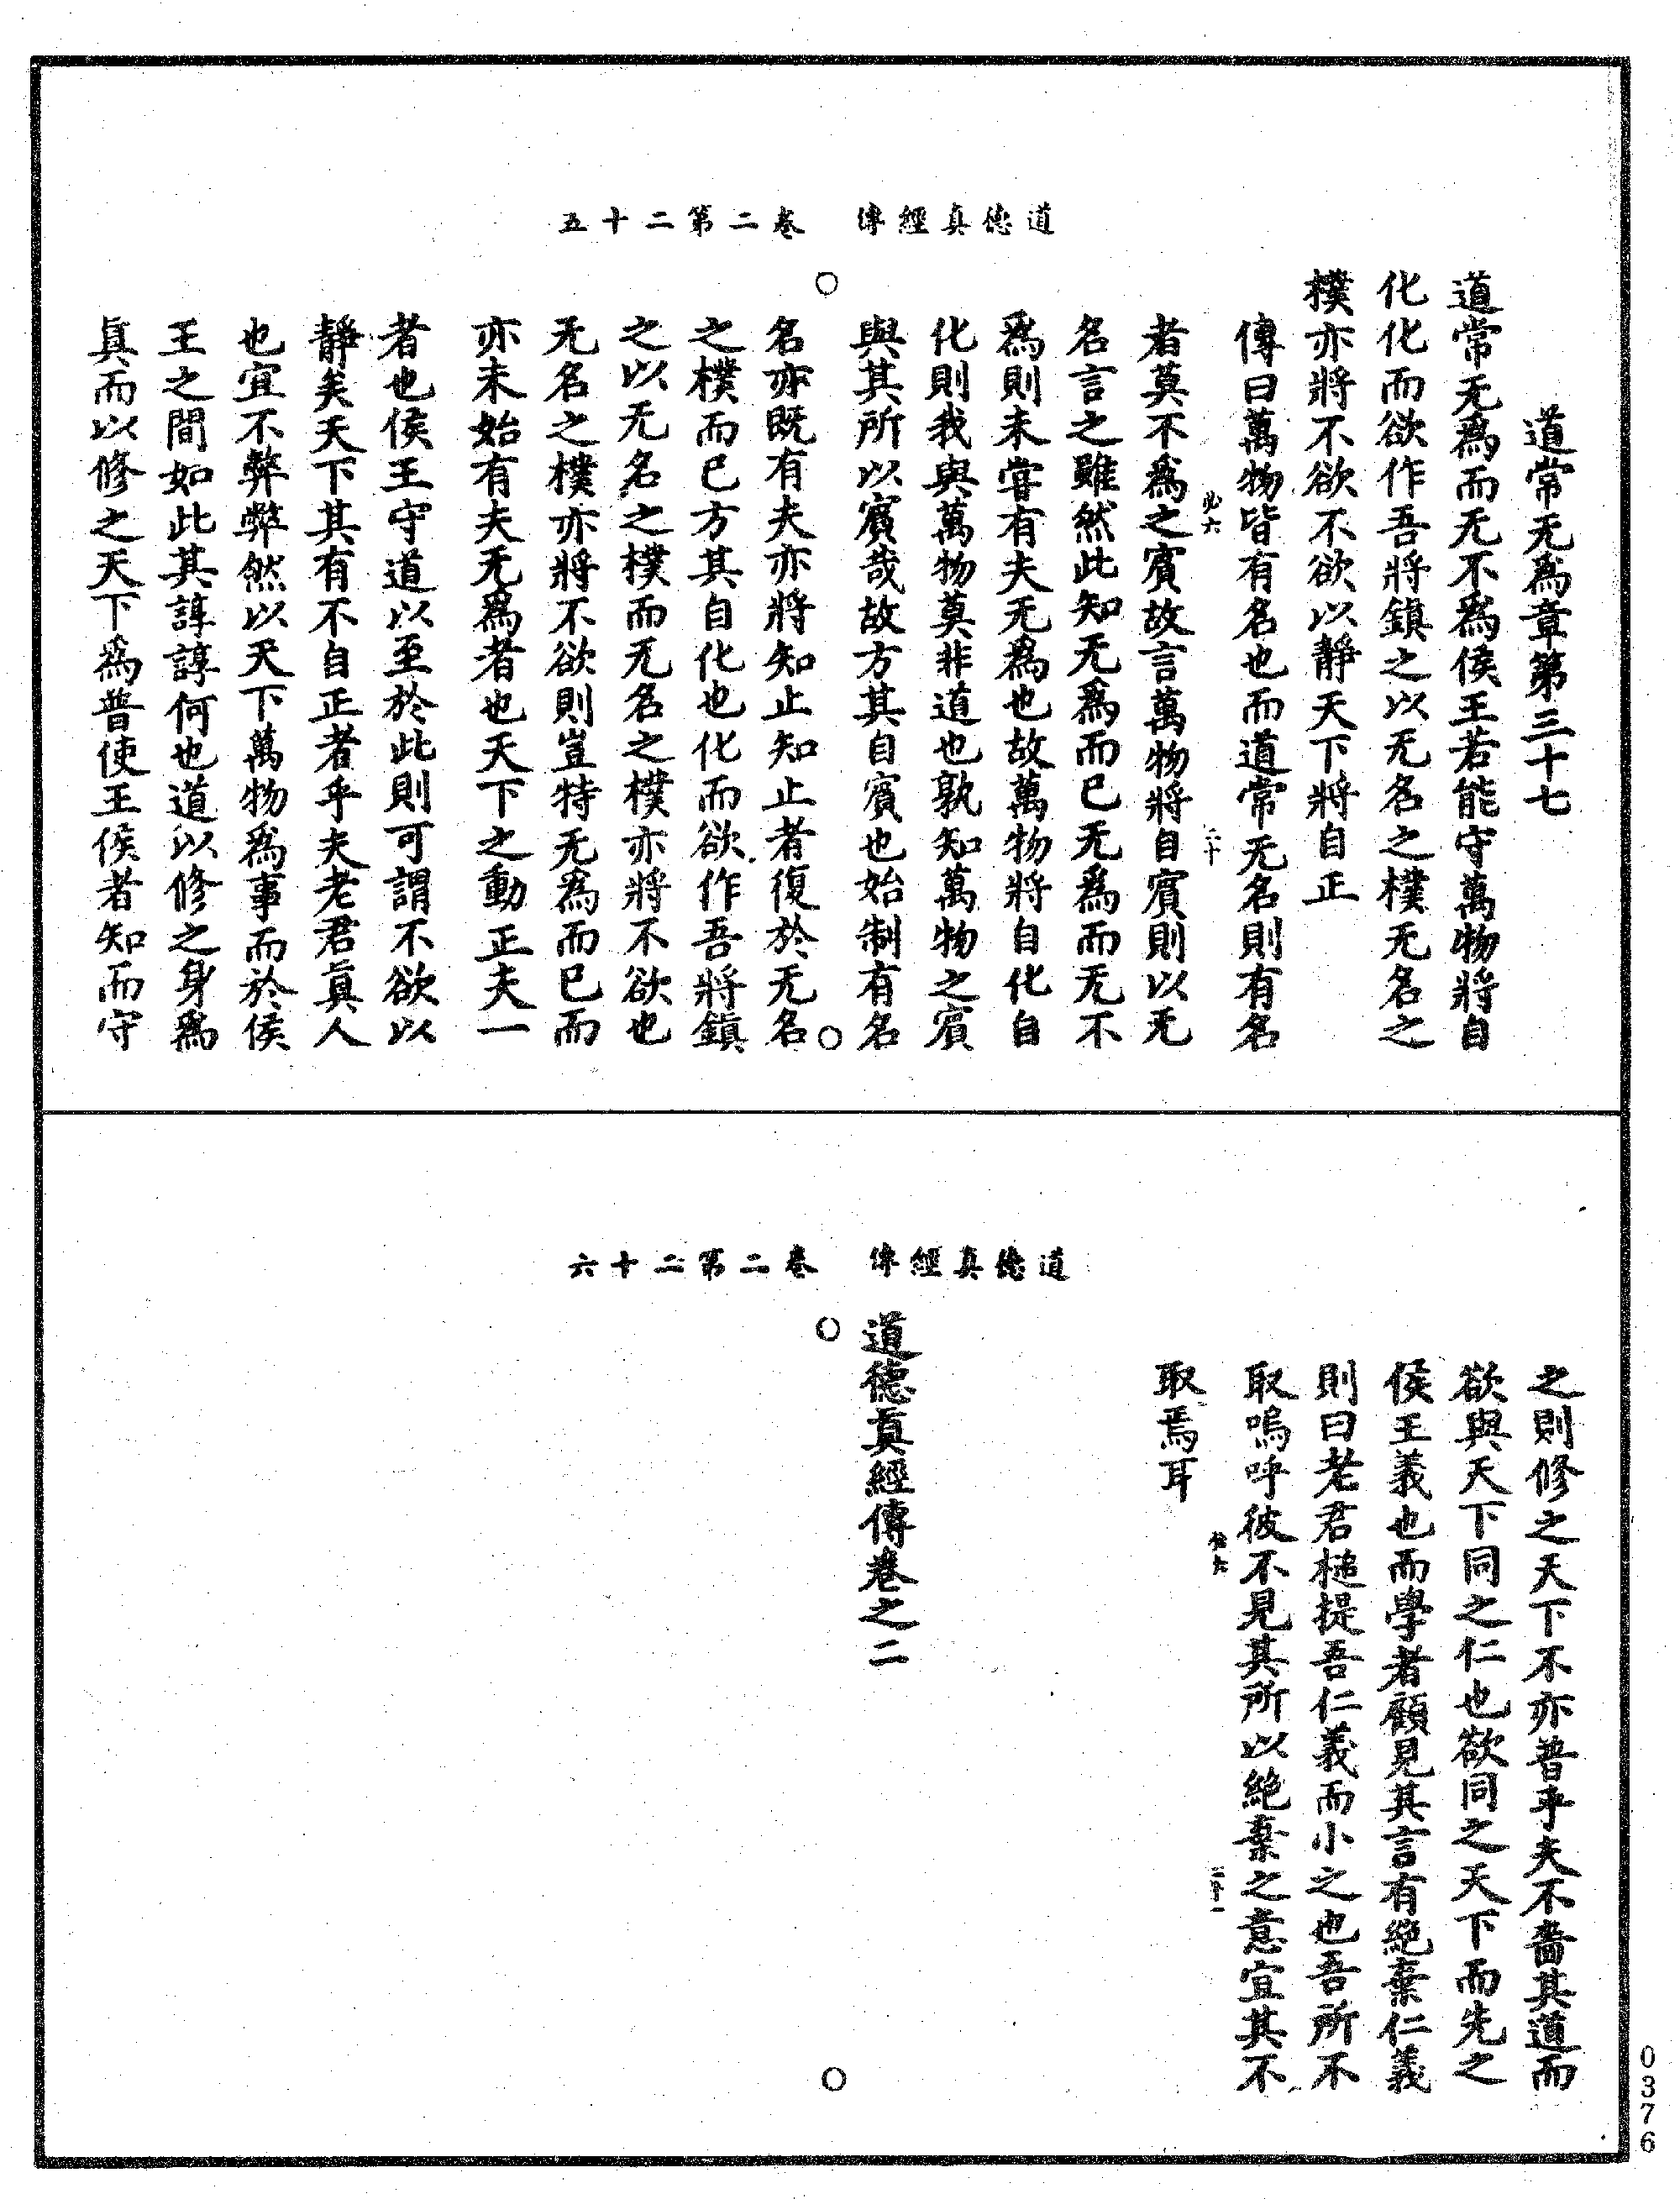 道德真經傳　卷二第二十五
道常无爲章第三十七
道常无爲而无不爲侯王若能守萬物將自
化化而欲作吾將鎮之以无名之樸无名之
樸亦將不欲不欲以靜天下將自正
傳曰萬物皆有名也而道常无名則有名
者莫不爲之賓故言萬物將自賓則以无
名言之雖然此知无爲而已无爲而无不
爲則未嘗有夫无爲也故萬物將自化自
化則我與萬物莫非道也孰知萬物之賓
與其所以賓哉故方其自賓也始制有名
名亦既有夫亦將知止知止者復於无名
之樸而已方其自化也化而欲作吾將鎮
之以无名之樸而无名之樸亦將不欲也
无名之樸亦將不欲則豈特无爲而已而
亦未始有夫无爲者也天下之動正夫一
者也侯王守道以至於此則可謂不欲以
靜矣天下其有不自正者乎夫老君真人
也宜不弊弊然以天下萬物爲事而於侯
王之間如此其諄諄何也道以修之身爲
真而以修之天下爲普使王侯者知而守
道德真經傳　卷二第二十六
之則修之天下不亦普乎夫不嗇其道而
欲與天下同之仁也欲同之天下而先之
侯王義也而學者顧見其言有絕棄仁義
則曰老君槌提吾仁義而小之也吾所不
取嗚呼彼不見其所以絕棄之意宜其不
取焉耳
道德真經傳卷之二
0376